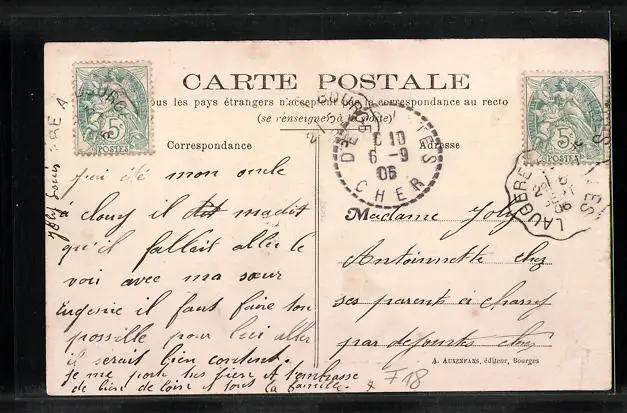 CARTE POSTALE
ous les pays étrangers n'acceptent pas la correspondance au recto
(se renseigner à la poste)
Correspondance
Adresse
5c
POSTES
5c
POSTES
6-9
06
CHERS
LAUGÈRE
j'ai été mon oncle
à clouy il ma dit
qu'il fallait allée le
voir avec ma sœur
Eugenie il faut faire ton
possille pour lui aller
il serait bien content.
je me porte très bien et t'embrasse
de bien de loire et tous la famille
Joly Louis
Madame Joly
Antoinnette chez
ses parents à chassy
par dejointes cher
A. AUXENFANS, éditeur, Bourges
F18